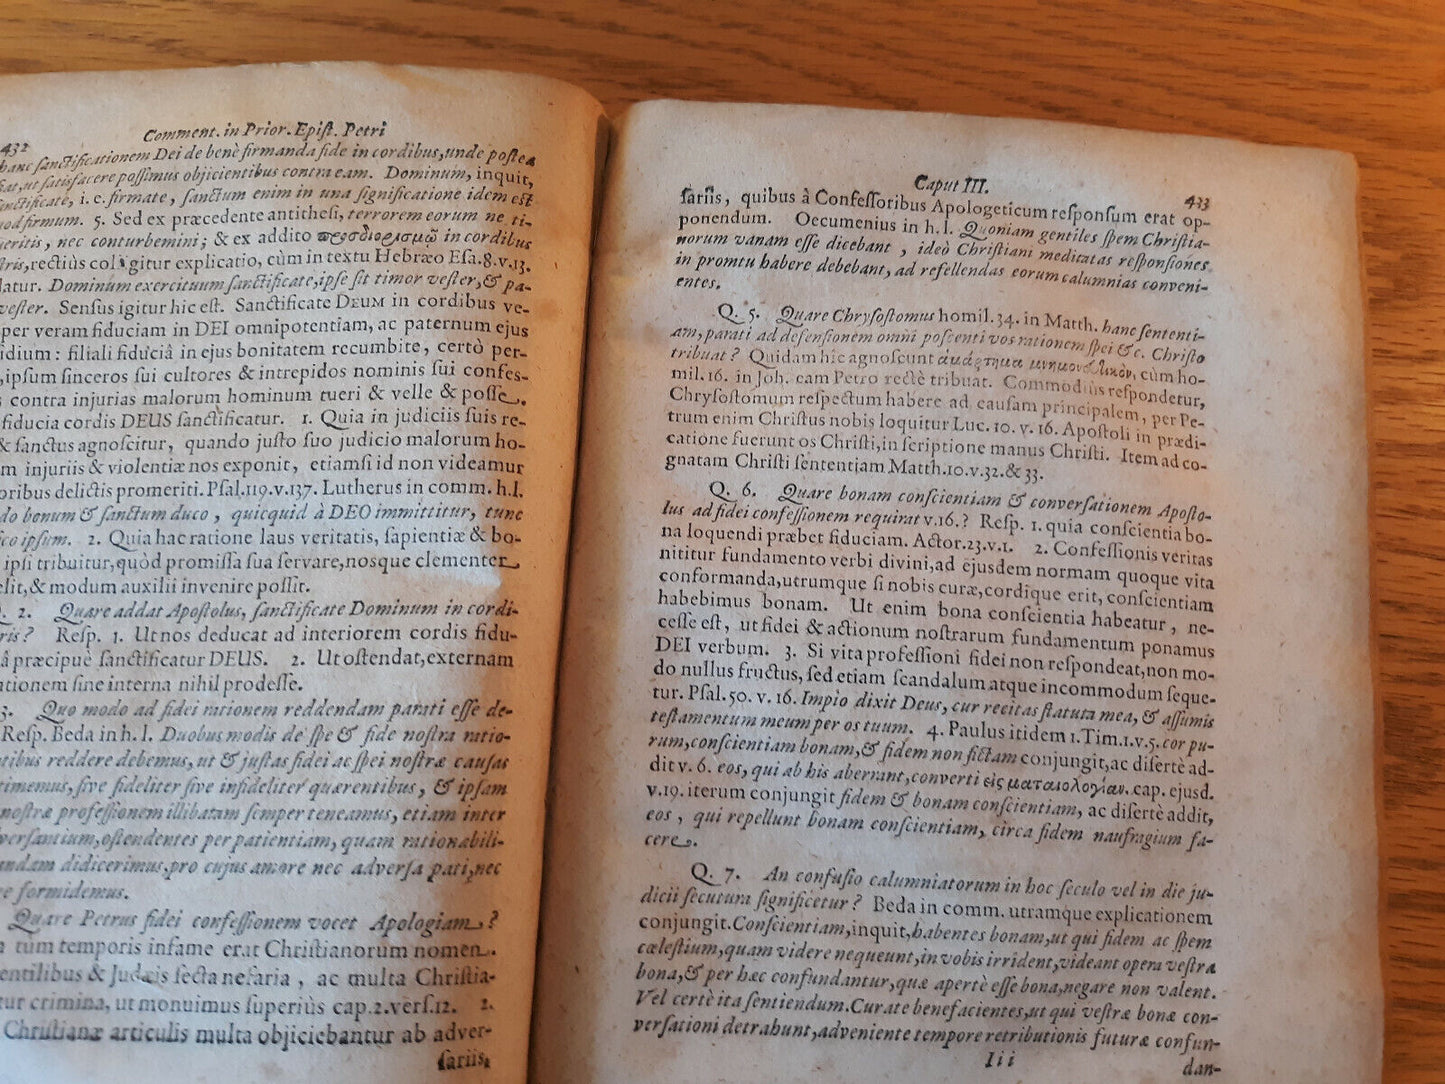 432
Comment. in Prior. Epist. Petri
hanc sanctificationem Dei de benè firmanda fide in cordibus, unde postea
ut satisfacere possimus objicientibus contra eam. Dominum, inquit,
sanctificate, i. e. firmate, sanctum enim in una significatione idem est
quod firmum. 5. Sed ex præcedente antithesi, terrorem eorum ne ti-
mueritis, nec conturbemini; & ex addito προσδιορισμῶ in cordibus
vestris, rectiùs colligitur explicatio, cùm in textu Hebræo Esa. 8. v. 13.
latur. Dominum exercituum sanctificate, ipse sit timor vester, & pa-
vester. Sensus igitur hic est. Sanctificate DEUM in cordibus ve-
per veram fiduciam in DEI omnipotentiam, ac paternum ejus
idium: filiali fiduciâ in ejus bonitatem recumbite, certò per-
, ipsum sinceros sui cultores & intrepidos nominis sui confes-
s contra injurias malorum hominum tueri & velle & posse.
fiducia cordis DEUS sanctificatur. 1. Quia in judiciis suis re-
& sanctus agnoscitur, quando justo suo judicio malorum ho-
m injuriis & violentiæ nos exponit, etiamsi id non videamur
oribus delictis promeriti. Psal. 119. v. 137. Lutherus in comm. h. l.
do bonum & sanctum duco, quicquid à DEO immittitur, tunc
ico ipsum. 2. Quia hac ratione laus veritatis, sapientiæ & bo-
ipsi tribuitur, quòd promissa sua servare, nosque clementer
elit, & modum auxilii invenire possit.
Q. 2. Quare addat Apostolus, sanctificate Dominum in cordi-
ris? Resp. 1. Ut nos deducat ad interiorem cordis fidu-
â præcipuè sanctificatur DEUS. 2. Ut ostendat, externam
ationem sine interna nihil prodesse.
3. Quo modo ad fidei rationem reddendam parati esse de-
Resp. Beda in h. l. Duobus modis de spe & fide nostra ratio-
tibus reddere debemus, ut & justas fidei ac spei nostræ causas
timemus, sive fideliter sive infideliter quærentibus, & ipsam
nostræ professionem illibatam semper teneamus, etiam inter
versantium, ostendentes per patientiam, quam rationabili-
andam didicerimus, pro cujus amore nec adversa pati, nec
re formidemus.
Quare Petrus fidei confessionem vocet Apologiam?
a tùm temporis infame erat Christianorum nomen.
entilibus & Judæis secta nefaria, ac multa Christia-
tur crimina, ut monuimus superiùs cap. 2. vers. 12. 2.
Christianæ articulis multa objiciebantur ab adver-
sariis,
Caput III.
433
sariis, quibus à Confessoribus Apologeticum responsum erat op-
ponendum. Oecumenius in h. l. Quoniam gentiles spem Christia-
norum vanam esse dicebant, ideò Christiani meditatas responsiones
in promtu habere debebant, ad refellendas eorum calumnias conveni-
entes.
Q. 5. Quare Chrysostomus homil. 34. in Matth. hanc sententi-
am, parati ad defensionem omni poscenti vos rationem spei &c. Christo
tribuat? Quidam hic agnoscunt ἁμάρτημα μνημονευτικὸν, cùm ho-
mil. 16. in Joh. eam Petro rectè tribuat. Commodiùs respondetur,
Chrysostomum respectum habere ad causam principalem, per Pe-
trum enim Christus nobis loquitur Luc. 10. v. 16. Apostoli in prædi-
catione fuerunt os Christi, in scriptione manus Christi. Item ad co-
gnatam Christi sententiam Matth. 10. v. 32. & 33.
Q. 6. Quare bonam conscientiam & conversationem Aposto-
lus ad fidei confessionem requirat v. 16.? Resp. 1. quia conscientia bo-
na loquendi præbet fiduciam. Actor. 23. v. 1. 2. Confessionis veritas
nititur fundamento verbi divini, ad ejusdem normam quoque vita
conformanda, utrumque si nobis curæ, cordique erit, conscientiam
habebimus bonam. Ut enim bona conscientia habeatur, ne-
cesse est, ut fidei & actionum nostrarum fundamentum ponamus
DEI verbum. 3. Si vita professioni fidei non respondeat, non mo-
do nullus fructus, sed etiam scandalum atque incommodum seque-
tur. Psal. 50. v. 16. Impio dixit Deus, cur recitas statuta mea, & assumis
testamentum meum per os tuum. 4. Paulus itidem 1. Tim. 1. v. 5. cor pu-
rum, conscientiam bonam, & fidem non fictam conjungit, ac disertè ad-
dit v. 6. eos, qui ab his aberrant, converti εἰς ματαιολογίαν. cap. ejusd.
v. 19. iterum conjungit fidem & bonam conscientiam, ac disertè addit,
eos, qui repellunt bonam conscientiam, circa fidem naufragium fa-
cere.
Q. 7. An confusio calumniatorum in hoc seculo vel in die ju-
dicii secutura significetur? Beda in comm. utramque explicationem
conjungit. Conscientiam, inquit, habentes bonam, ut qui fidem ac spem
cælestium, quam videre nequeunt, in vobis irrident, videant opera vestra
bona, & per hæc confundantur, quæ apertè esse bona, negare non valent.
Vel certè ita sentiendum. Curate benefacientes, ut qui vestræ bonæ con-
versationi detrahunt, adveniente tempore retributionis futuræ confun-
Iii
dan-